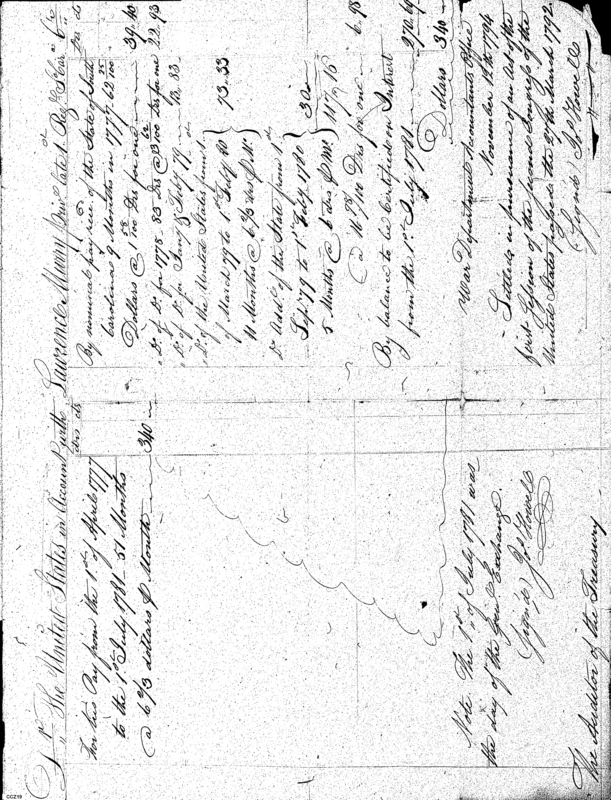 Dr. The United States in Account with Lawrence Murry Priv. late 1 Reg. S. Car. Cr.
drs cts
For his Pay from the 1st of April 1777
to the 1st July 1781 - 51 Months
@ 6 2/3 dollars P Month 340
Note The 1st of July 1781 was
the day of the Genl Exchange
Signed, Jos Howell
The Auditor of the Treasury
drs cts
By nominal pay recd of the State of South
Carolina 9 Months in 1777 62 25/100
Dollars @ 1 58/100 Drs for one 39.40
Do of Do for 1778 83 Drs @ 3 Drs for one 22.93
Do of Do for Jany & Feby 79 13.83
Do of the United States from 1
of March 79 to 1st Feby 80
11 Months @ 6 2/3 drs P Mo. 73.33
Do Addl of the State from 1st
Sept 79 to 1st Feby 1780
5 Months @ drs P Mo. 30
6.98
By balance to be Certified on Interest
from the 1st July 1781
Dollars 340
War Department Accountants Office
November 12th 1794
Settled in pursuance of an Act of the
first Session of the second Congress of the
United States passed the 27th March 1792
Signed, Jos Howell
CCZ19